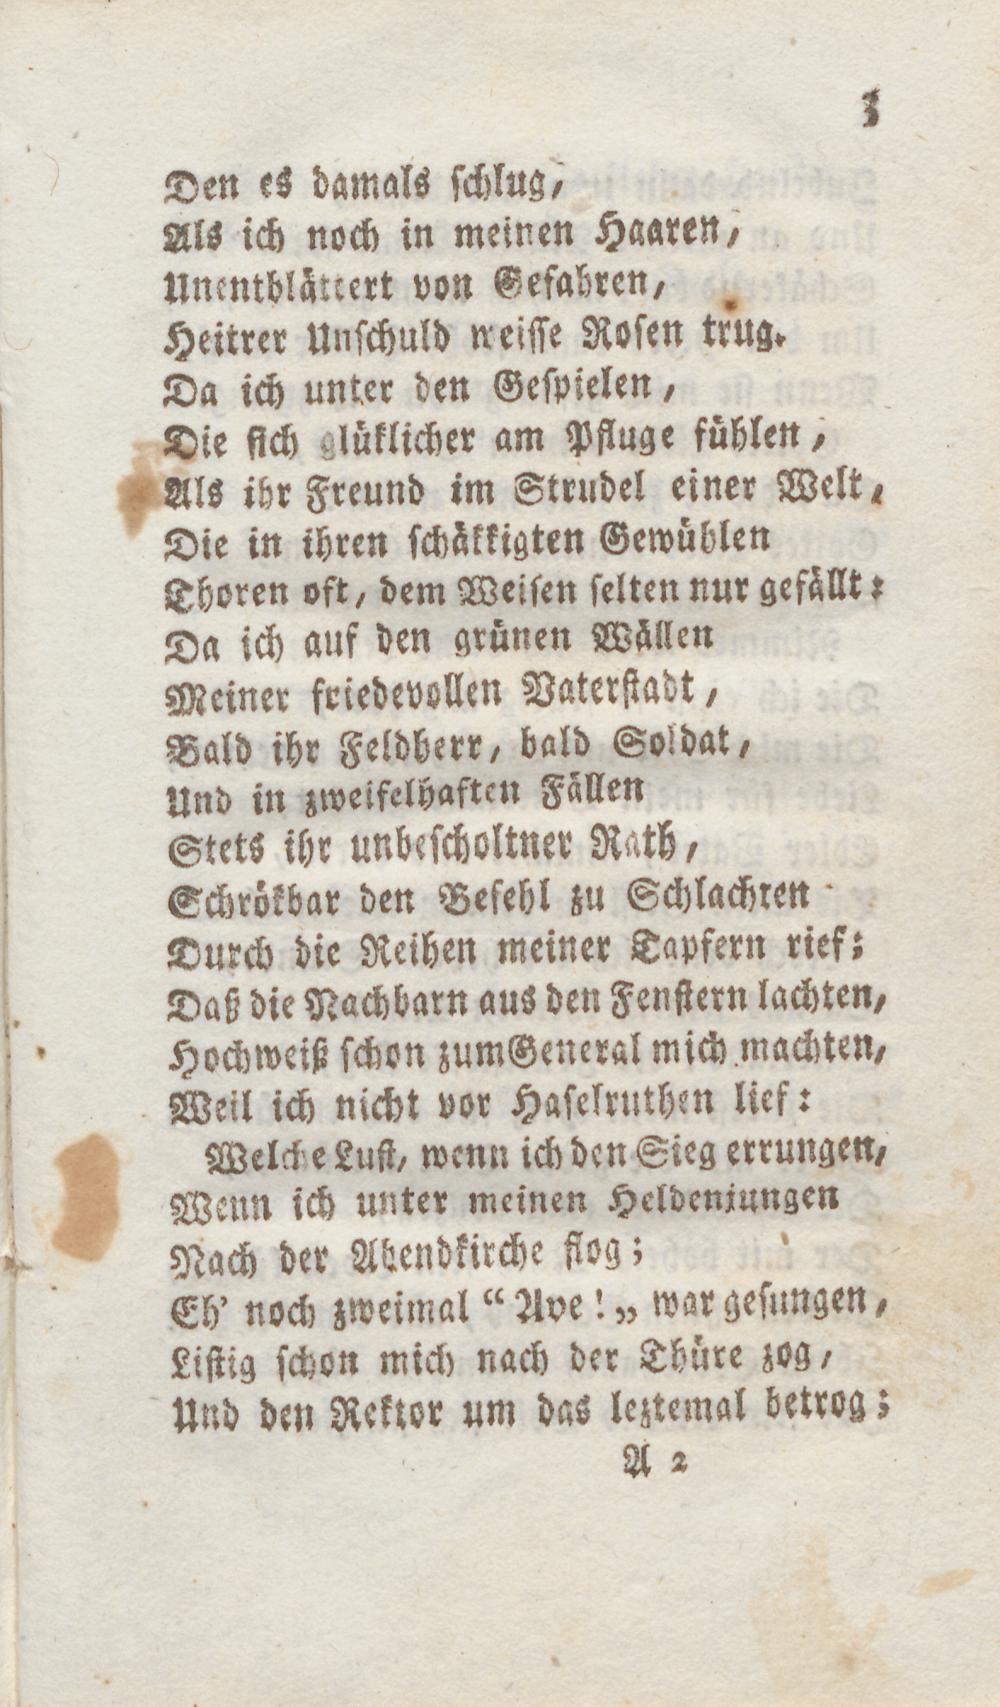 3
Den es damals ſchlug,
Als ich noch in meinen Haaren,
Unentblättert von Gefahren,
Heitrer Unſchuld weiſſe Roſen trug.
Da ich unter den Geſpielen,
Die ſich glüklicher am Pfluge fühlen,
Als ihr Freund im Strudel einer Welt,
Die in ihren ſchäkkigten Gewühlen
Thoren oft, dem Weiſen ſelten nur gefällt:
Da ich auf den grünen Wällen
Meiner friedevollen Vaterſtadt,
Bald ihr Feldherr, bald Soldat,
Und in zweifelhaften Fällen
Stets ihr unbeſcholtner Rath,
Schrökbar den Befehl zu Schlachten
Durch die Reihen meiner Tapfern rief;
Daß die Nachbarn aus den Fenſtern lachten,
Hochweiß ſchon zum General mich machten,
Weil ich nicht vor Haſelruthen lief:
Welche Luſt, wenn ich den Sieg errungen,
Wenn ich unter meinen Heldenjungen
Nach der Abendkirche flog;
Eh' noch zweimal “Ave!„ war geſungen,
Liſtig ſchon mich nach der Thüre zog,
Und den Rektor um das leztemal betrog;
A 2